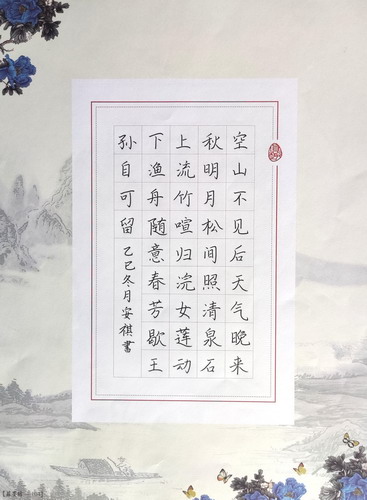 空山不见后天气晚来
秋明月松间照清泉石
上流竹喧归浣女莲动
下渔舟随意春芳歇王
孙自可留 乙巳冬月安祺書